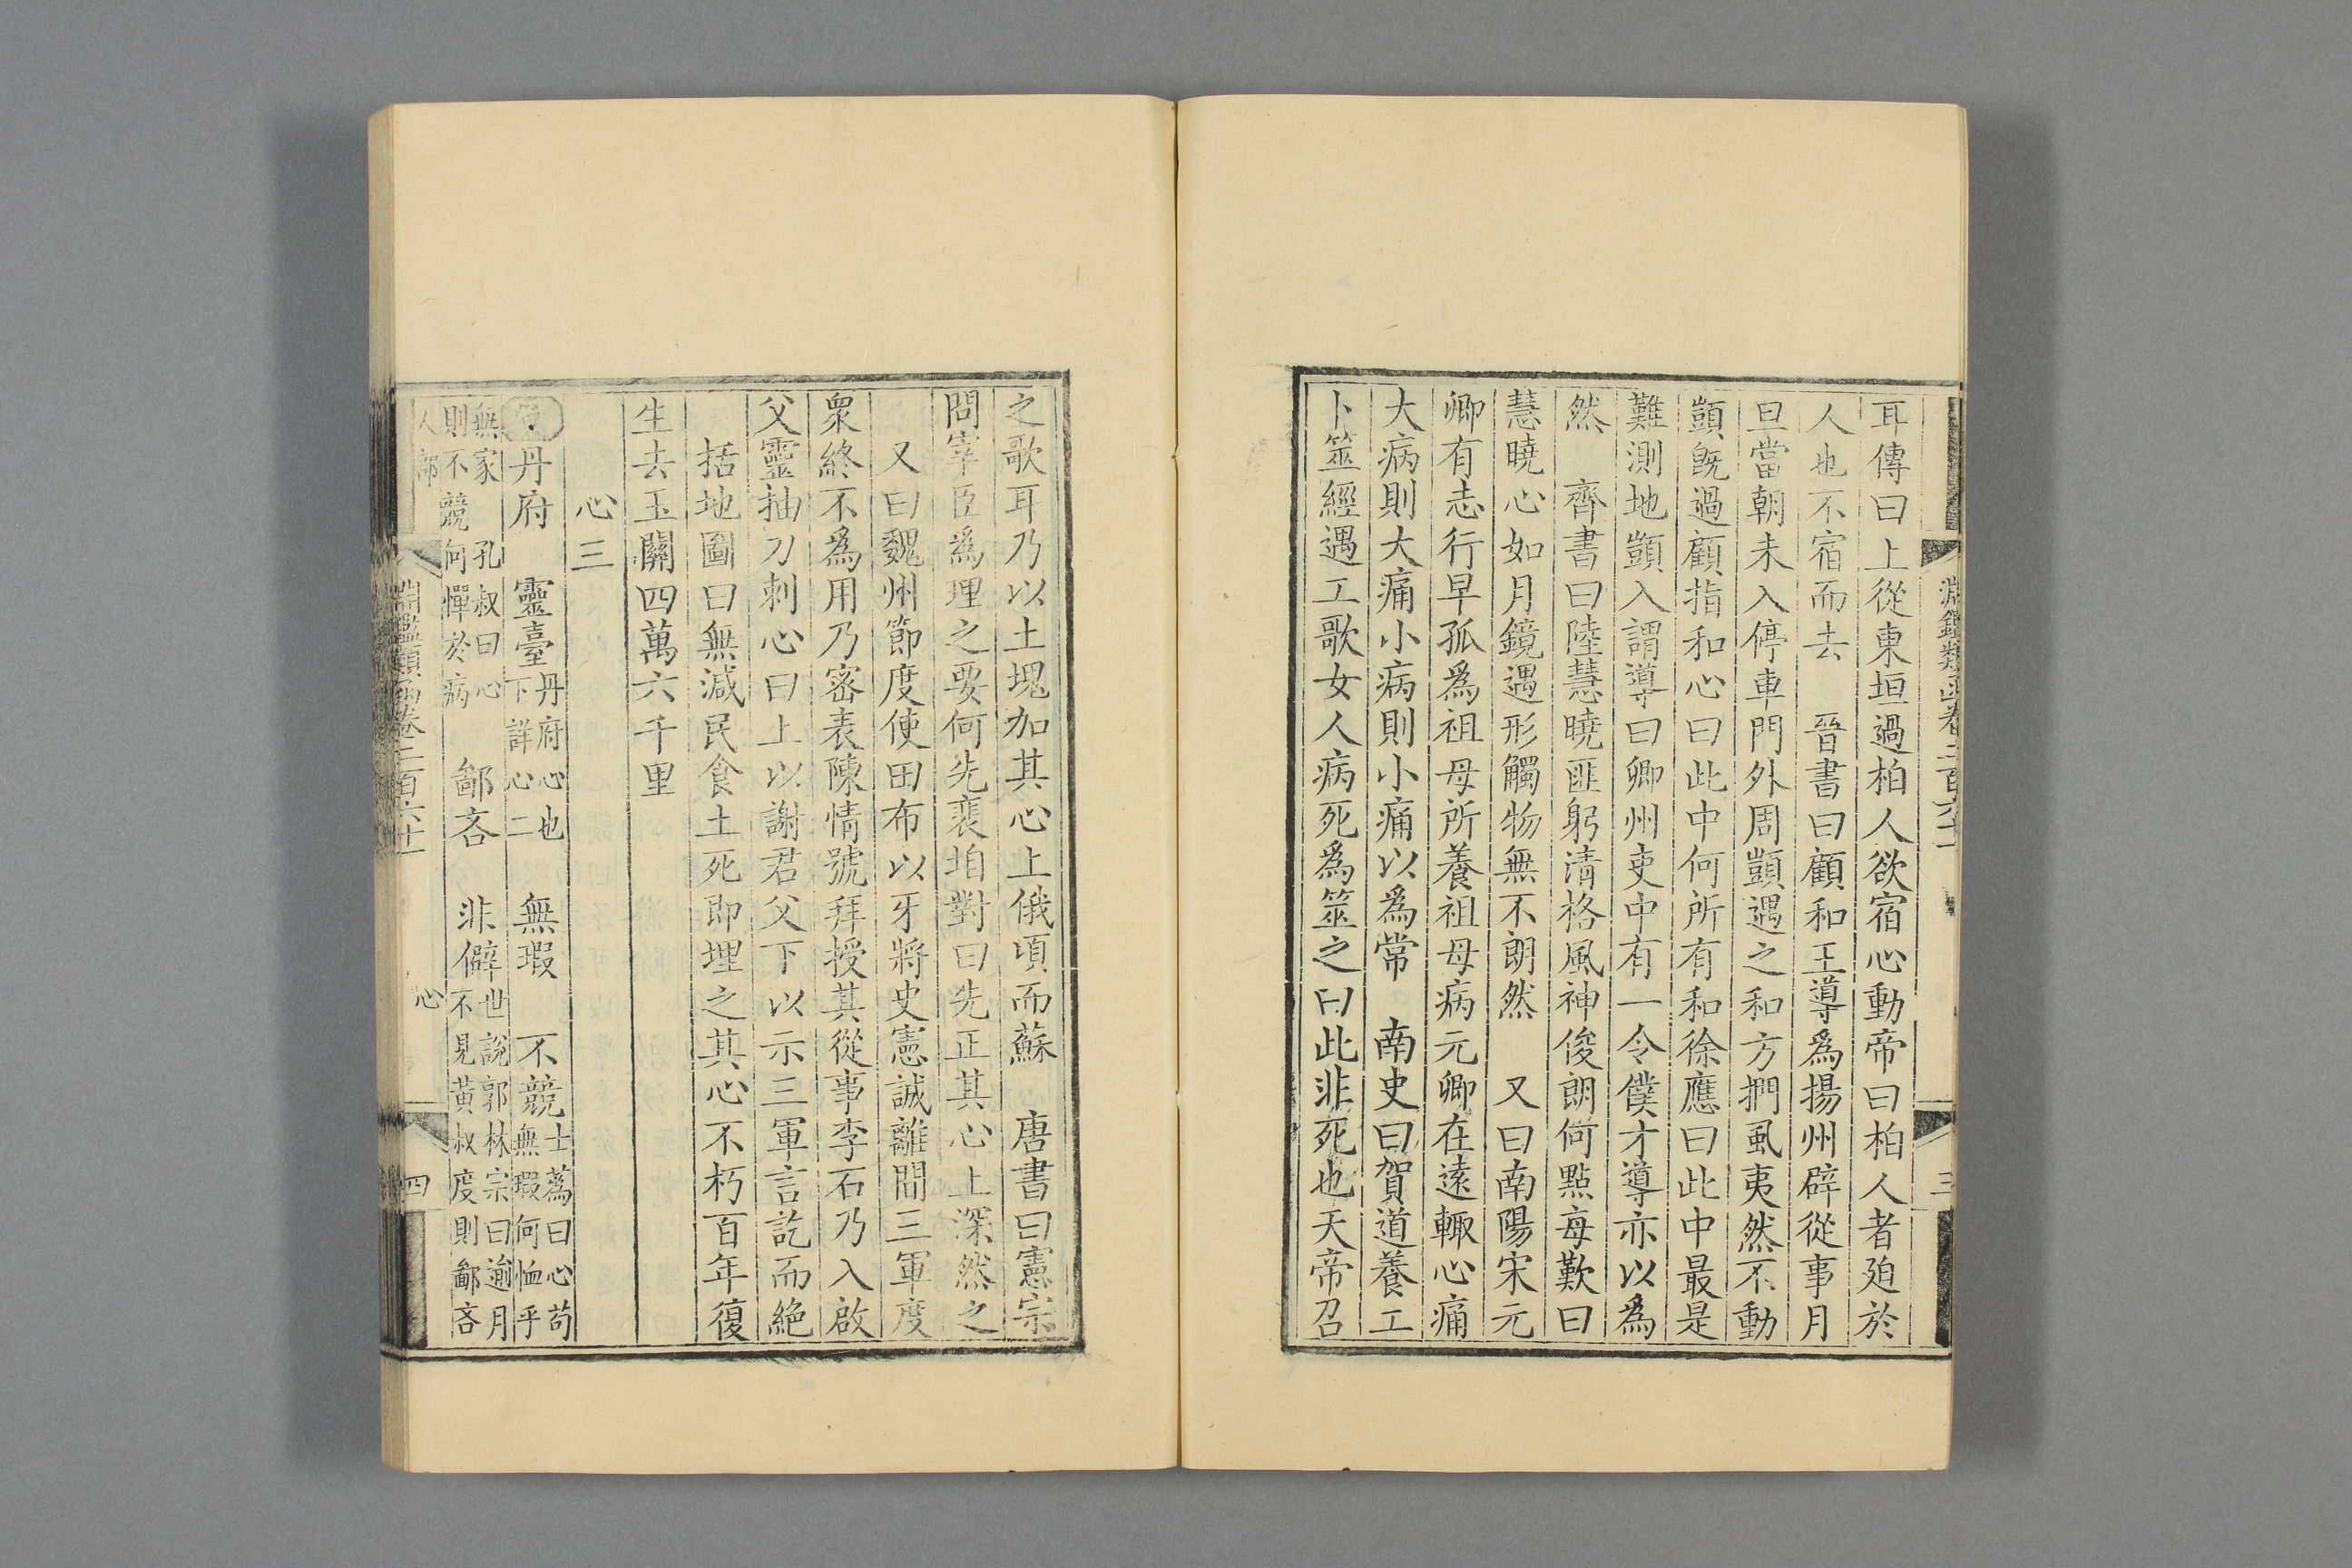 淵鑑類函卷二百六十一
三
耳傳曰上從東垣過柏人欲宿心動帝曰柏人者廹於
人也不宿而去　晉書曰顧和王導為揚州辟從事月
旦當朝未入停車門外周顗遇之和方捫虱夷然不動
顗旣過顧指和心曰此中何所有和徐應曰此中最是
難測地顗入謂導曰卿州吏中有一令僕才導亦以為
然　齊書曰陸慧曉匪躬清格風神俊朗何點每歎曰
慧曉心如月鏡遇形觸物無不朗然　又曰南陽宋元
卿有志行早孤爲祖母所養祖母病元卿在逺輙心痛
大病則大痛小病則小痛以爲常　南史曰賀道養工
卜筮經遇工歌女人病死爲筮之曰此非死也天帝召
之歌耳乃以土塊加其心上俄頃而蘇　唐書曰憲宗
問宰臣爲理之要何先裴垍對曰先正其心上深然之
又曰魏州節度使田布以牙將史憲誠離間三軍度
衆終不爲用乃密表陳情號拜授其從事李石乃入啟
父靈抽刀刺心曰上以謝君父下以示三軍言訖而絶
括地圖曰無減民食土死即埋之其心不朽百年復
生去玉關四萬六千里
心三
丹府　靈臺丹府心也下詳心二　無瑕　不競士蔿曰心苟無瑕何恤乎
無家　孔叔曰心則不競何憚於病　鄙吝　非僻世說郭林宗曰逾月不見黄叔度則鄙吝
人部
淵鑑類函卷二百六十一
心
四